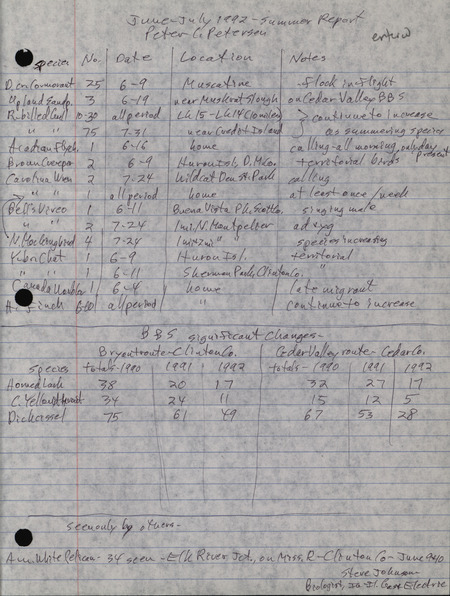 June-July 1992-Summer Report
Peter C. Petersen
species No. Date Location Notes
D. cr. Cormorant 25 6-9 Muscatine flock in flight
Upland Sandp. 3 6-19 near Muskrat Slough on Cedar Valley BBS
R. billed Gull 10-30 all period L&15-L&14 (10 miles) } continue to increase
" " 75 7-31 near Credit Island as summering species
Acadian Flych. 1 6-16 home calling all morning, only day present
Brown Creeper 2 6-9 Huron Isl. D. M. Co. territorial birds
Carolina Wren 2 7-24 Wildcat Den St. Park calling
" " 1 all period home at least once/week
Bell's Vireo 1 6-11 Buena Vista Pk, Scott Co. singing male
" " 2 7-24 1mi. N. Montpelier ad + yg
N. Mockingbird 4 7-24 " species increasing
Y. br. Chat 1 6-9 Huron Isl. territorial
" " 1 6-11 Sherman Park, Clinton Co. "
Canada Warbler 1 6-4 home late migrant
H. Finch 6-10 all period " continue to increase
BBS significant changes-
Bryant route-Clinton Co. Cedar Valley route-Cedar Co.
species totals-1990 1991 1992 totals-1990 1991 1992
Horned Lark 38 20 17 32 27 17
C. Yellowthroat 34 24 11 15 12 5
Dickcissel 75 61 49 67 53 28
seen only by others-
Am. White Pelican- 34 seen-Elk River Jct., on Miss. R-Clinton Co-June 9+10
Steve Johnson
Biologist, Ia-Il. Gas + Electric